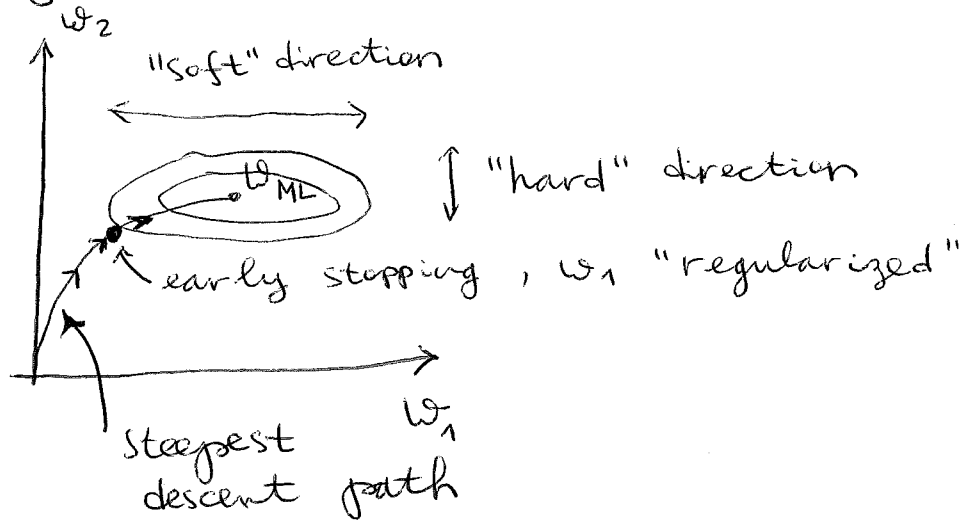 w2
"soft" direction
wML
"hard" direction
early stopping, w1 "regularized"
w1
steepest
descent path